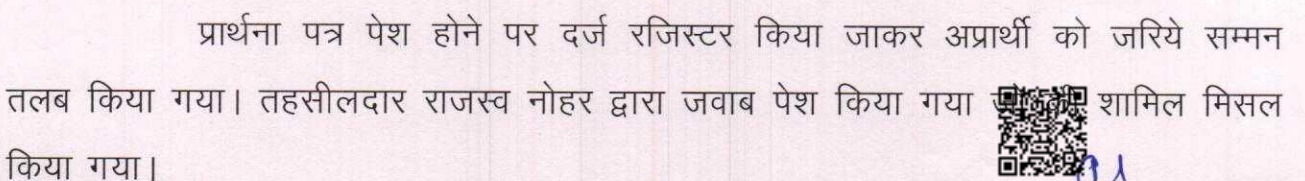 प्रार्थना पत्र पेश होने पर दर्ज रजिस्टर किया जाकर अप्रार्थी को जरिये सम्मन
तलब किया गया। तहसीलदार राजस्व नोहर द्वारा जवाब पेश किया गया शामिल मिसल
किया गया।